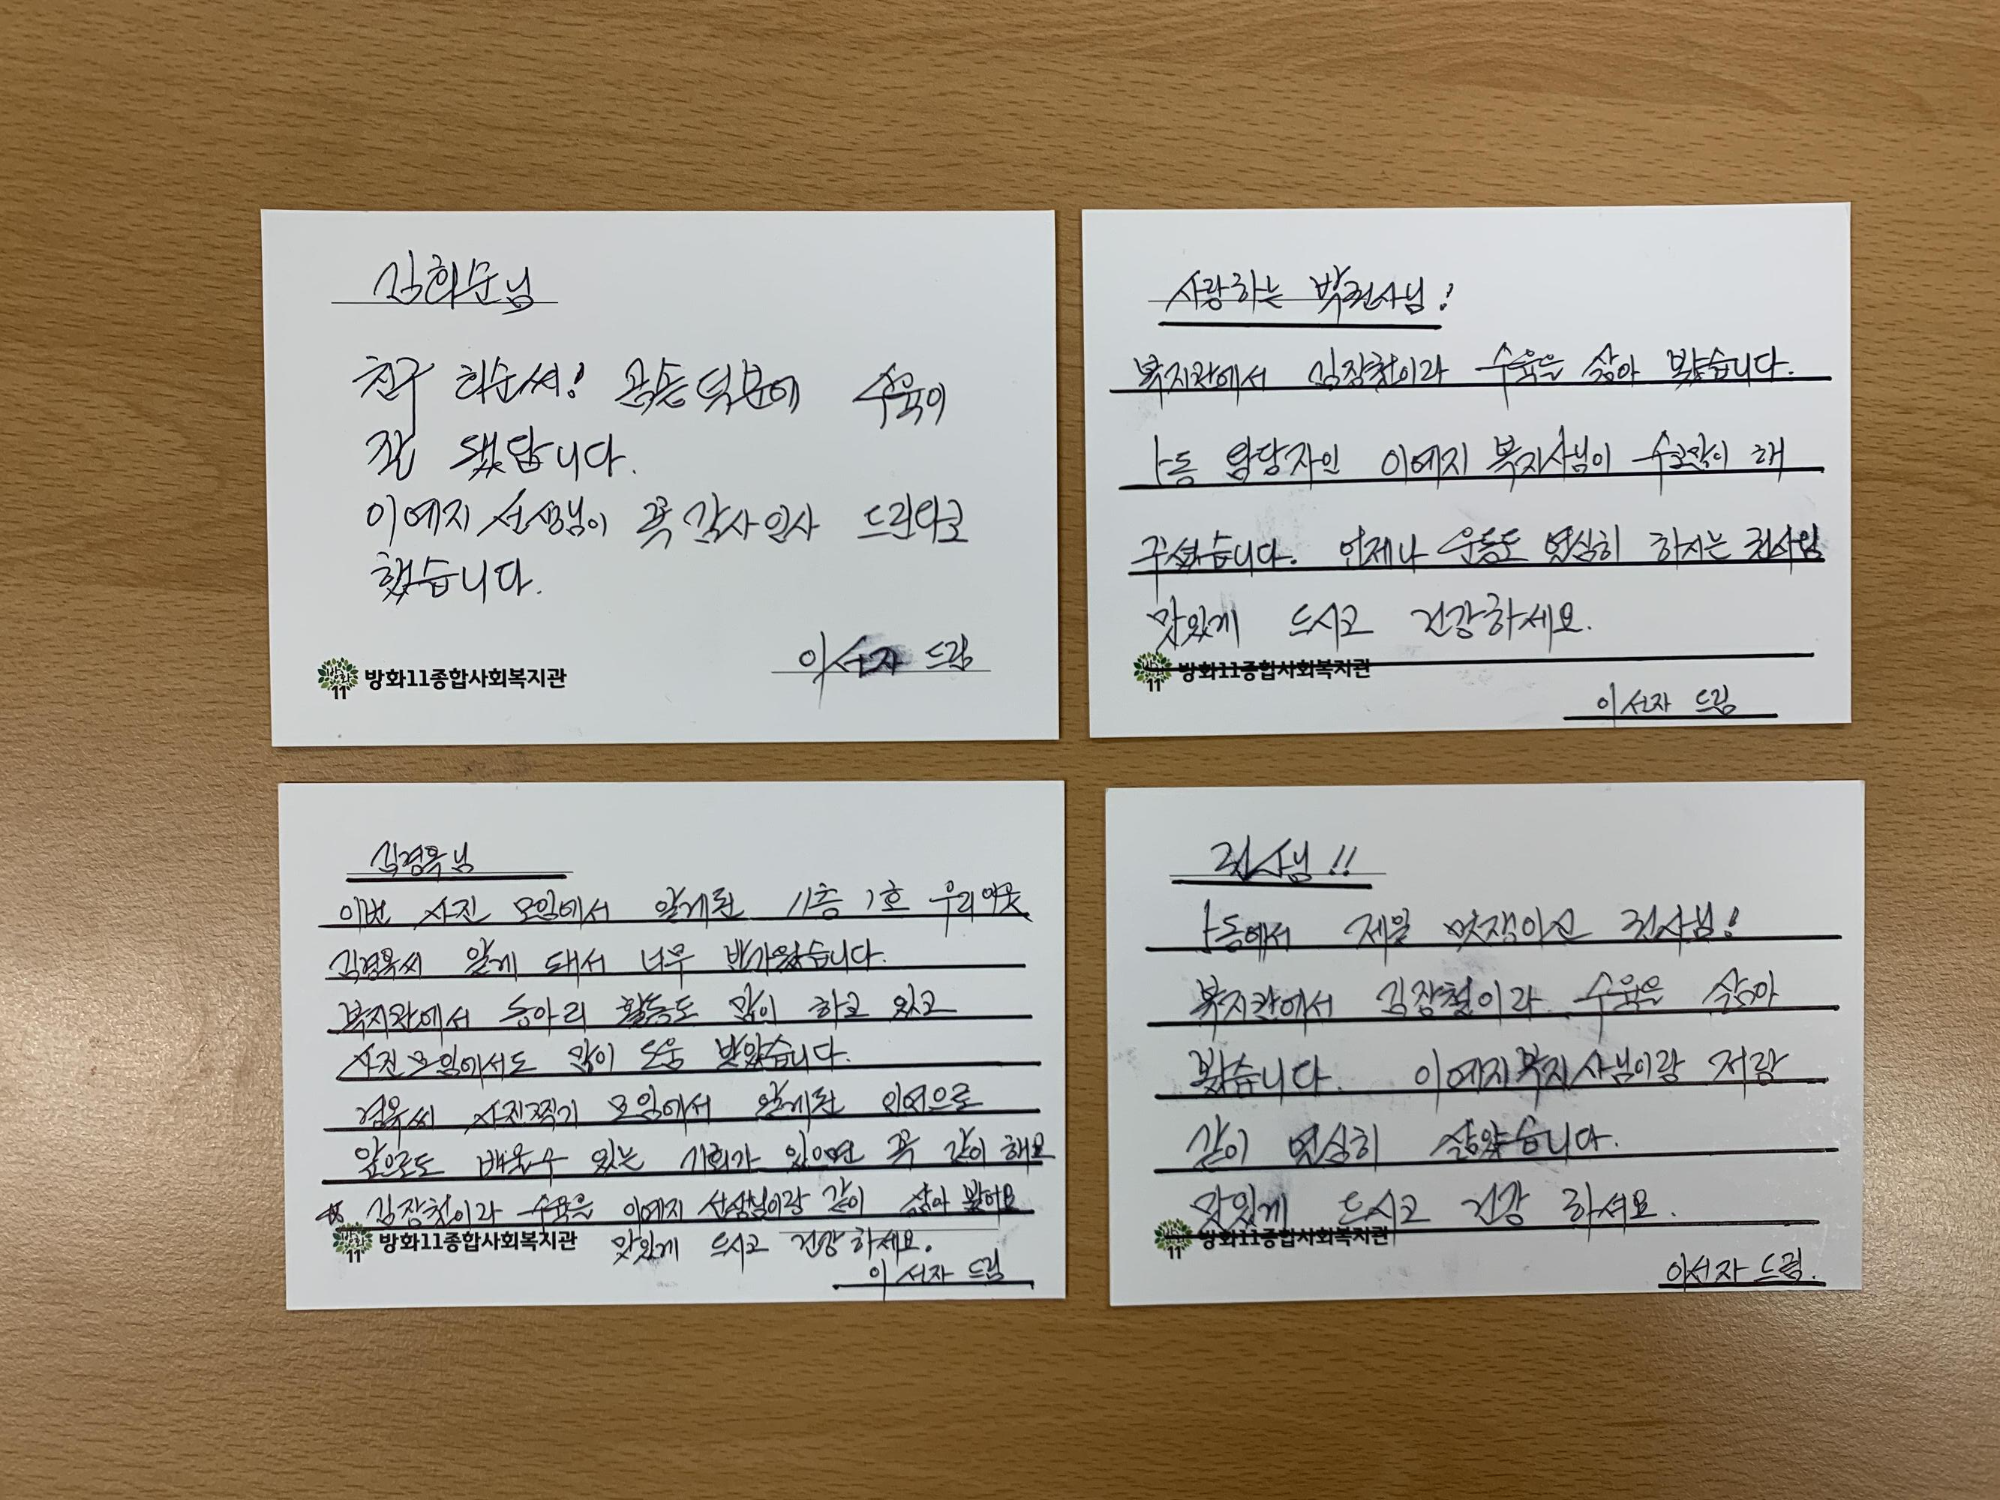 김희순님
친구 희순씨! 곰솥 덕분에 수육이
잘 됐답니다.
이예지 선생님이 꼭 감사인사 드린다고
했습니다.
이선자 드림
방화11종합사회복지관
사랑하는 박권사님!
복지관에서 김장철이라 수육을 삶아 봤습니다.
1동 담당자인 이예지 복지사님이 수고많이 해
주셨습니다. 언제나 운동도 열심히 하시는 권사님
맛있게 드시고 건강하세요.
방화11종합사회복지관
이선자 드림
김경옥님
이번 사진 모임에서 알게된 11층 1호 우리이웃
김경옥씨 알게 돼서 너무 반가웠습니다.
복지관에서 동아리 활동도 많이 하고 있고
사진모임에서도 많이 도움 받았습니다.
경옥씨 사진찍기 모임에서 알게된 인연으로
앞으로도 배울수 있는 기회가 있으면 꼭 같이 해요
김장철이라 수육을 이예지 선생님이랑 같이 삶아 봤어요
맛있게 드시고 건강하세요.
방화11종합사회복지관
이선자 드림
권사님!!
1동에서 제일 멋쟁이신 권사님!
복지관에서 김장철이라 수육을 삶아
봤습니다. 이예지복지사님이랑 저랑
같이 열심히 삶았습니다.
맛있게 드시고 건강 하셔요.
방화11종합사회복지관
이선자 드림.